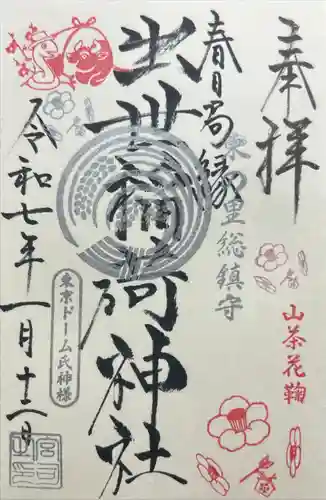 奉拝
春日局縁
東の里総鎮守
出世稲荷神社
山茶花鞠
東京ドーム氏神様
令和七年一月十二日